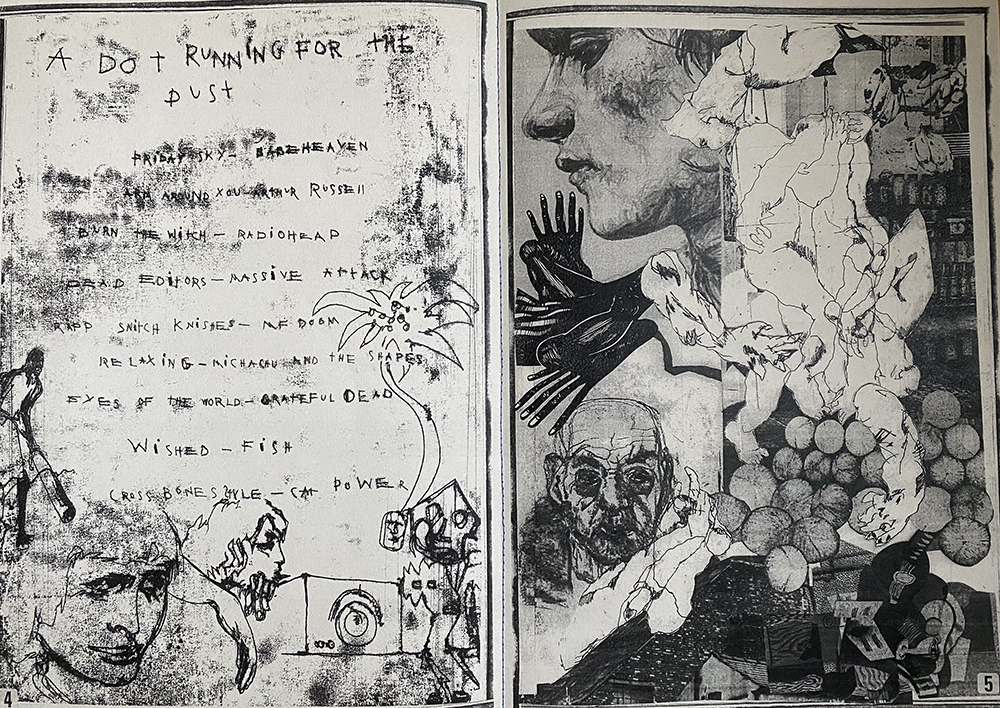 A DOT RUNNING FOR THE
DUST
FRIDAY SKY - BABEHEAVEN
ARM AROUND YOU - ARTHUR RUSSELL
BURN THE WITCH - RADIOHEAD
DEAD EDITORS - MASSIVE ATTACK
RAPP SNITCH KNISHES - MF DOOM
RELAXING - MICHACHU AND THE SHAPES
EYES OF THE WORLD - GRATEFUL DEAD
WISHED - FISH
CROSS BONES STYLE - CAT POWER
4
5